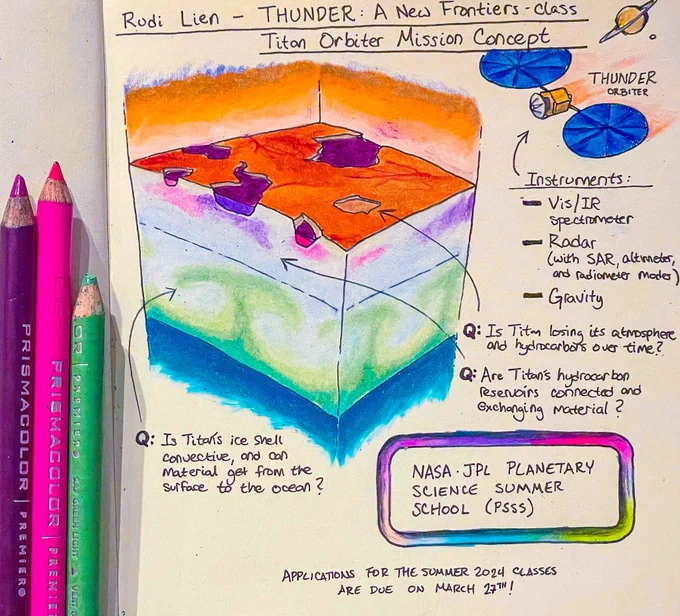 Rudi Lien - THUNDER: A New Frontiers-class
Titan Orbiter Mission Concept
THUNDER
ORBITER
Instruments:
Vis/IR
spectrometer
Radar
(with SAR, altimeter,
and radiometer modes)
Gravity
Q: Is Titan losing its atmosphere
and hydrocarbons over time?
Q: Are Titan's hydrocarbon
reservoirs connected and
exchanging material?
Q: Is Titan's ice shell
convective, and can
material get from the
surface to the ocean?
NASA · JPL PLANETARY
SCIENCE SUMMER
SCHOOL (PSSS)
APPLICATIONS FOR THE SUMMER 2024 CLASSES
ARE DUE ON MARCH 27TH!
PRISMACOLOR | PREMIER
PRISMACOLOR | PREMIE
PREMIER